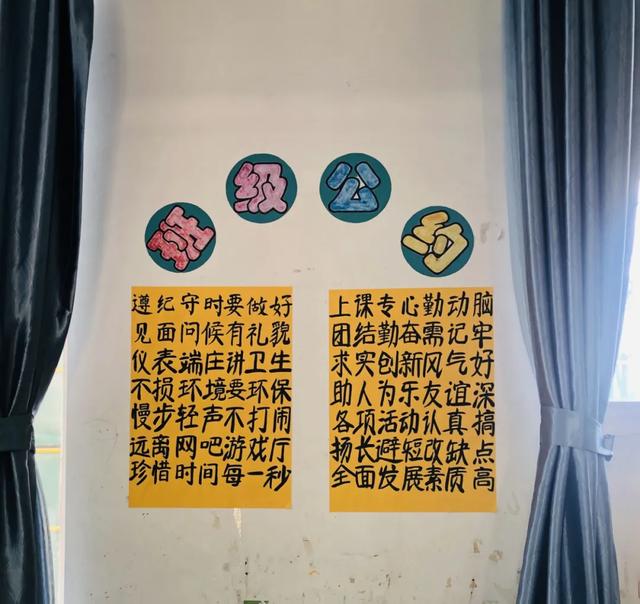 班级公约
遵纪守时要做好
见面问候有礼貌
仪表端庄讲卫生
不损环境要环保
慢步轻声不打闹
远离网吧游戏厅
珍惜时间每一秒
上课专心勤动脑
团结勤奋需记牢
求实创新风气好
助人为乐友谊深
各项活动认真搞
扬长避短改缺点
全面发展素质高